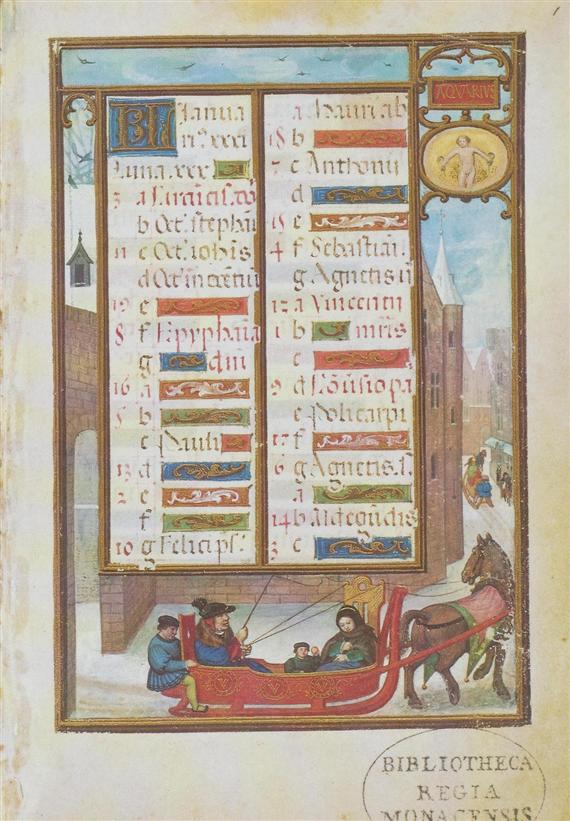 KL Janua
ri9 xxxi
Luna.xxx
3 a
b Oct. stephai
11 c Oct. iohis
d Oct. inocetiu
19 e
8 f Epyphaia
g
16 a
5 b
c Pauli
13 d
2 e
f
10 g
a Mauri ab
18 b
7 c Anthonii
d
15 e
4 f Sebastiani.
g Agnetis
12 a Vincentii
1 b mris
c
9 d pa
e Policarpi
17 f
6 g Agnetis.
a
14 b aldegudis
3 c
AQVARIVS
BIBLIOTHECA
REGIA
MONACENSIS